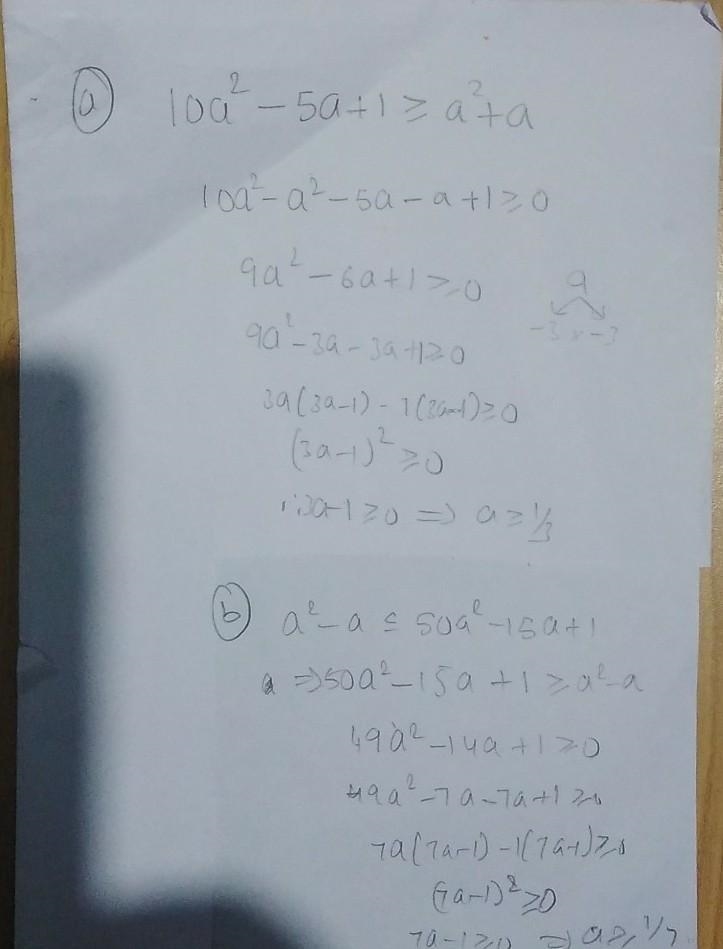 (a) 10a² - 5a + 1 ≥ a² + a
10a² - a² - 5a - a + 1 ≥ 0
9a² - 6a + 1 ≥ 0
9
-3 x -3
9a² - 3a - 3a + 1 ≥ 0
3a(3a-1) - 1(3a-1) ≥ 0
(3a-1)² ≥ 0
∴ 3a-1 ≥ 0 ⇒ a ≥ 1/3
(b) a² - a ≤ 50a² - 15a + 1
⇒ 50a² - 15a + 1 ≥ a² - a
49a² - 14a + 1 ≥ 0
49a² - 7a - 7a + 1 ≥ 0
7a(7a-1) - 1(7a-1) ≥ 0
(7a-1)² ≥ 0
7a-1 ≥ 0 ⇒ a ≥ 1/7